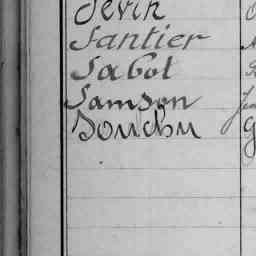 Sevin
Santier
Sabot
Samson
Souchu